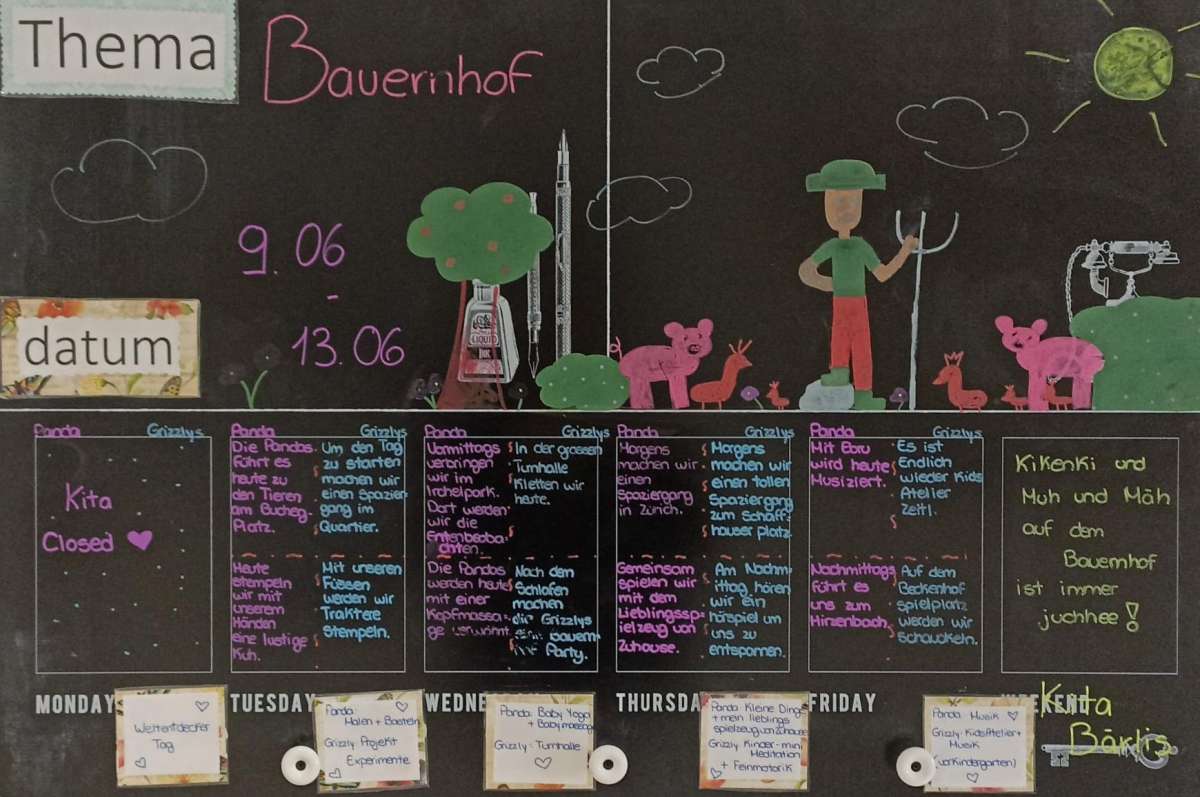 Thema
Bauernhof
9.06
-
13.06
datum
LIQUID
INK
Panda
Grizzlys
Kita
Closed
Panda
Die Pandas
führt es
heute zu
den Tieren
am Bucheg.
Platz.
Heute
stempeln
wir mit
unserem
Händen
eine lustige
Kuh.
Grizzlys
Um den Tag
zu starten
machen wir
einen Spazier
gang im
Quartier.
Mit unseren
Füssen
werden wir
Traktere
stempeln.
Panda
Vormittags
verbringen
wir im
Irchelpark.
Dort werden
wir die
Entenbeoba-
chten.
Die Pandas
werden heute
mit einer
Kopfmassa-
ge verwöhnt
Grizzlys
In der grossen
Turnhalle
Kletten wir
heute.
Nach dem
Schlafen
machen
die Grizzlys
Party.
Panda
Morgens
machen wir
einen
Spaziergang
in Zürich.
Gemeinsam
spielen wir
mit dem
Lieblingssp-
ielzeug von
Zuhause.
Grizzlys
Morgens
machen wir
einen tollen
Spaziergang
zum Schaff-
hauser platz.
Am Nachm-
ittag hören
wir ein
hörspiel um
uns zu
entspannen.
Panda
Mit Ebru
wird heute
Musiziert.
Nachmittags
führt es
uns zum
Hirzenbach.
Grizzlys
Es ist
Endlich
wieder Kids
Atelier
Zeit!.
Auf dem
Beckenhof
spielplatz
werden wir
schaukeln.
Kikeriki und
Muh und Mäh
auf dem
Bauernhof
ist immer
juchhee!
MONDAY
TUESDAY
THURSDA
FRIDAY
Kita
Bärlis
Weltentdecker
Tag
Panda:
Malen + Basteln
Grizzly: Projekt
Experimente
Panda: Baby Yoga
+ Babymassage
Grizzly: Turnhalle
Panda: Kleine Dinge
+ mein lieblings
spielzeug von Zuhause
Grizzly: Kinder-mini
Meditation
+ Feinmotorik
Panda: Musik
Grizzly: KidsAtelier+
Musik
(vorKindergarten)